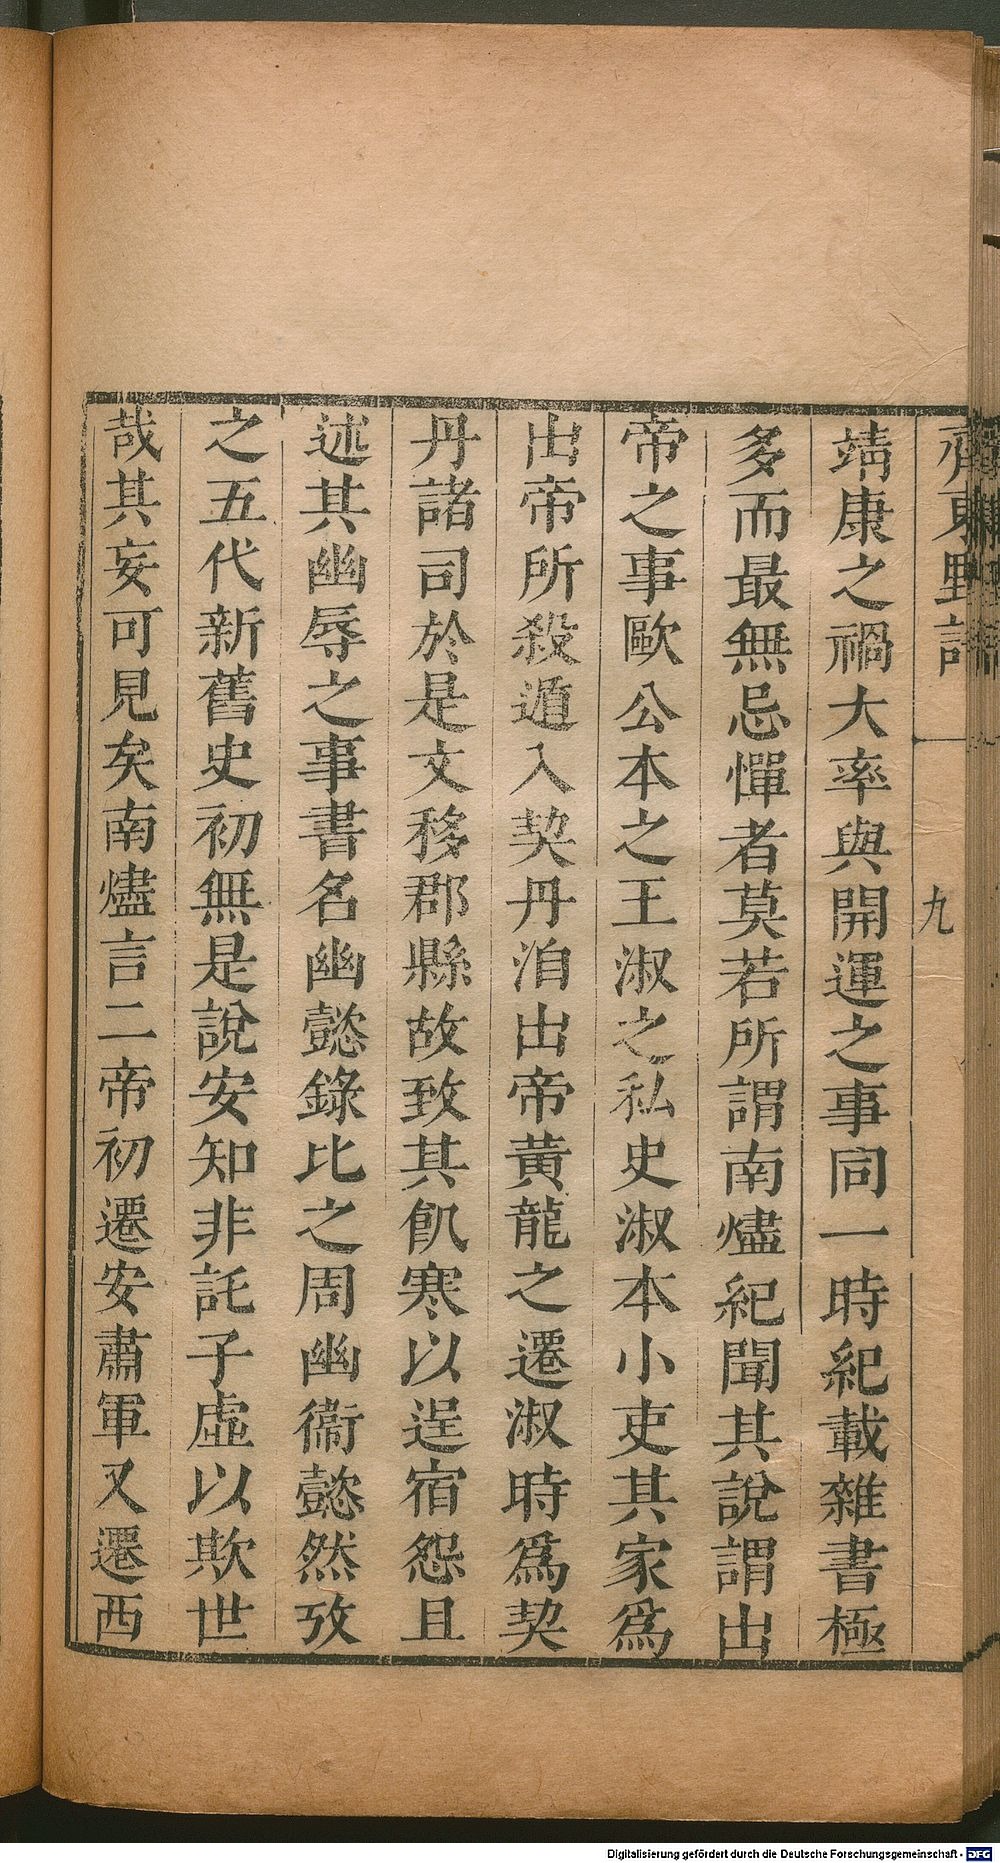 齊東野語
九
靖康之禍大率與開運之事同一時紀載雜書極
多而最無忌憚者莫若所謂南燼紀聞其說謂出
帝之事歐公本之王淑之私史淑本小吏其家爲
出帝所殺遁入契丹洎出帝黃龍之遷淑時爲契
丹諸司於是文移郡縣故致其飢寒以逞宿怨且
述其幽辱之事書名幽懿錄比之周幽衞懿然攷
之五代新舊史初無是說安知非託子虛以欺世
哉其妄可見矣南燼言二帝初遷安肅軍又遷西
Digitalisierung gefördert durch die Deutsche Forschungsgemeinschaft - DFG